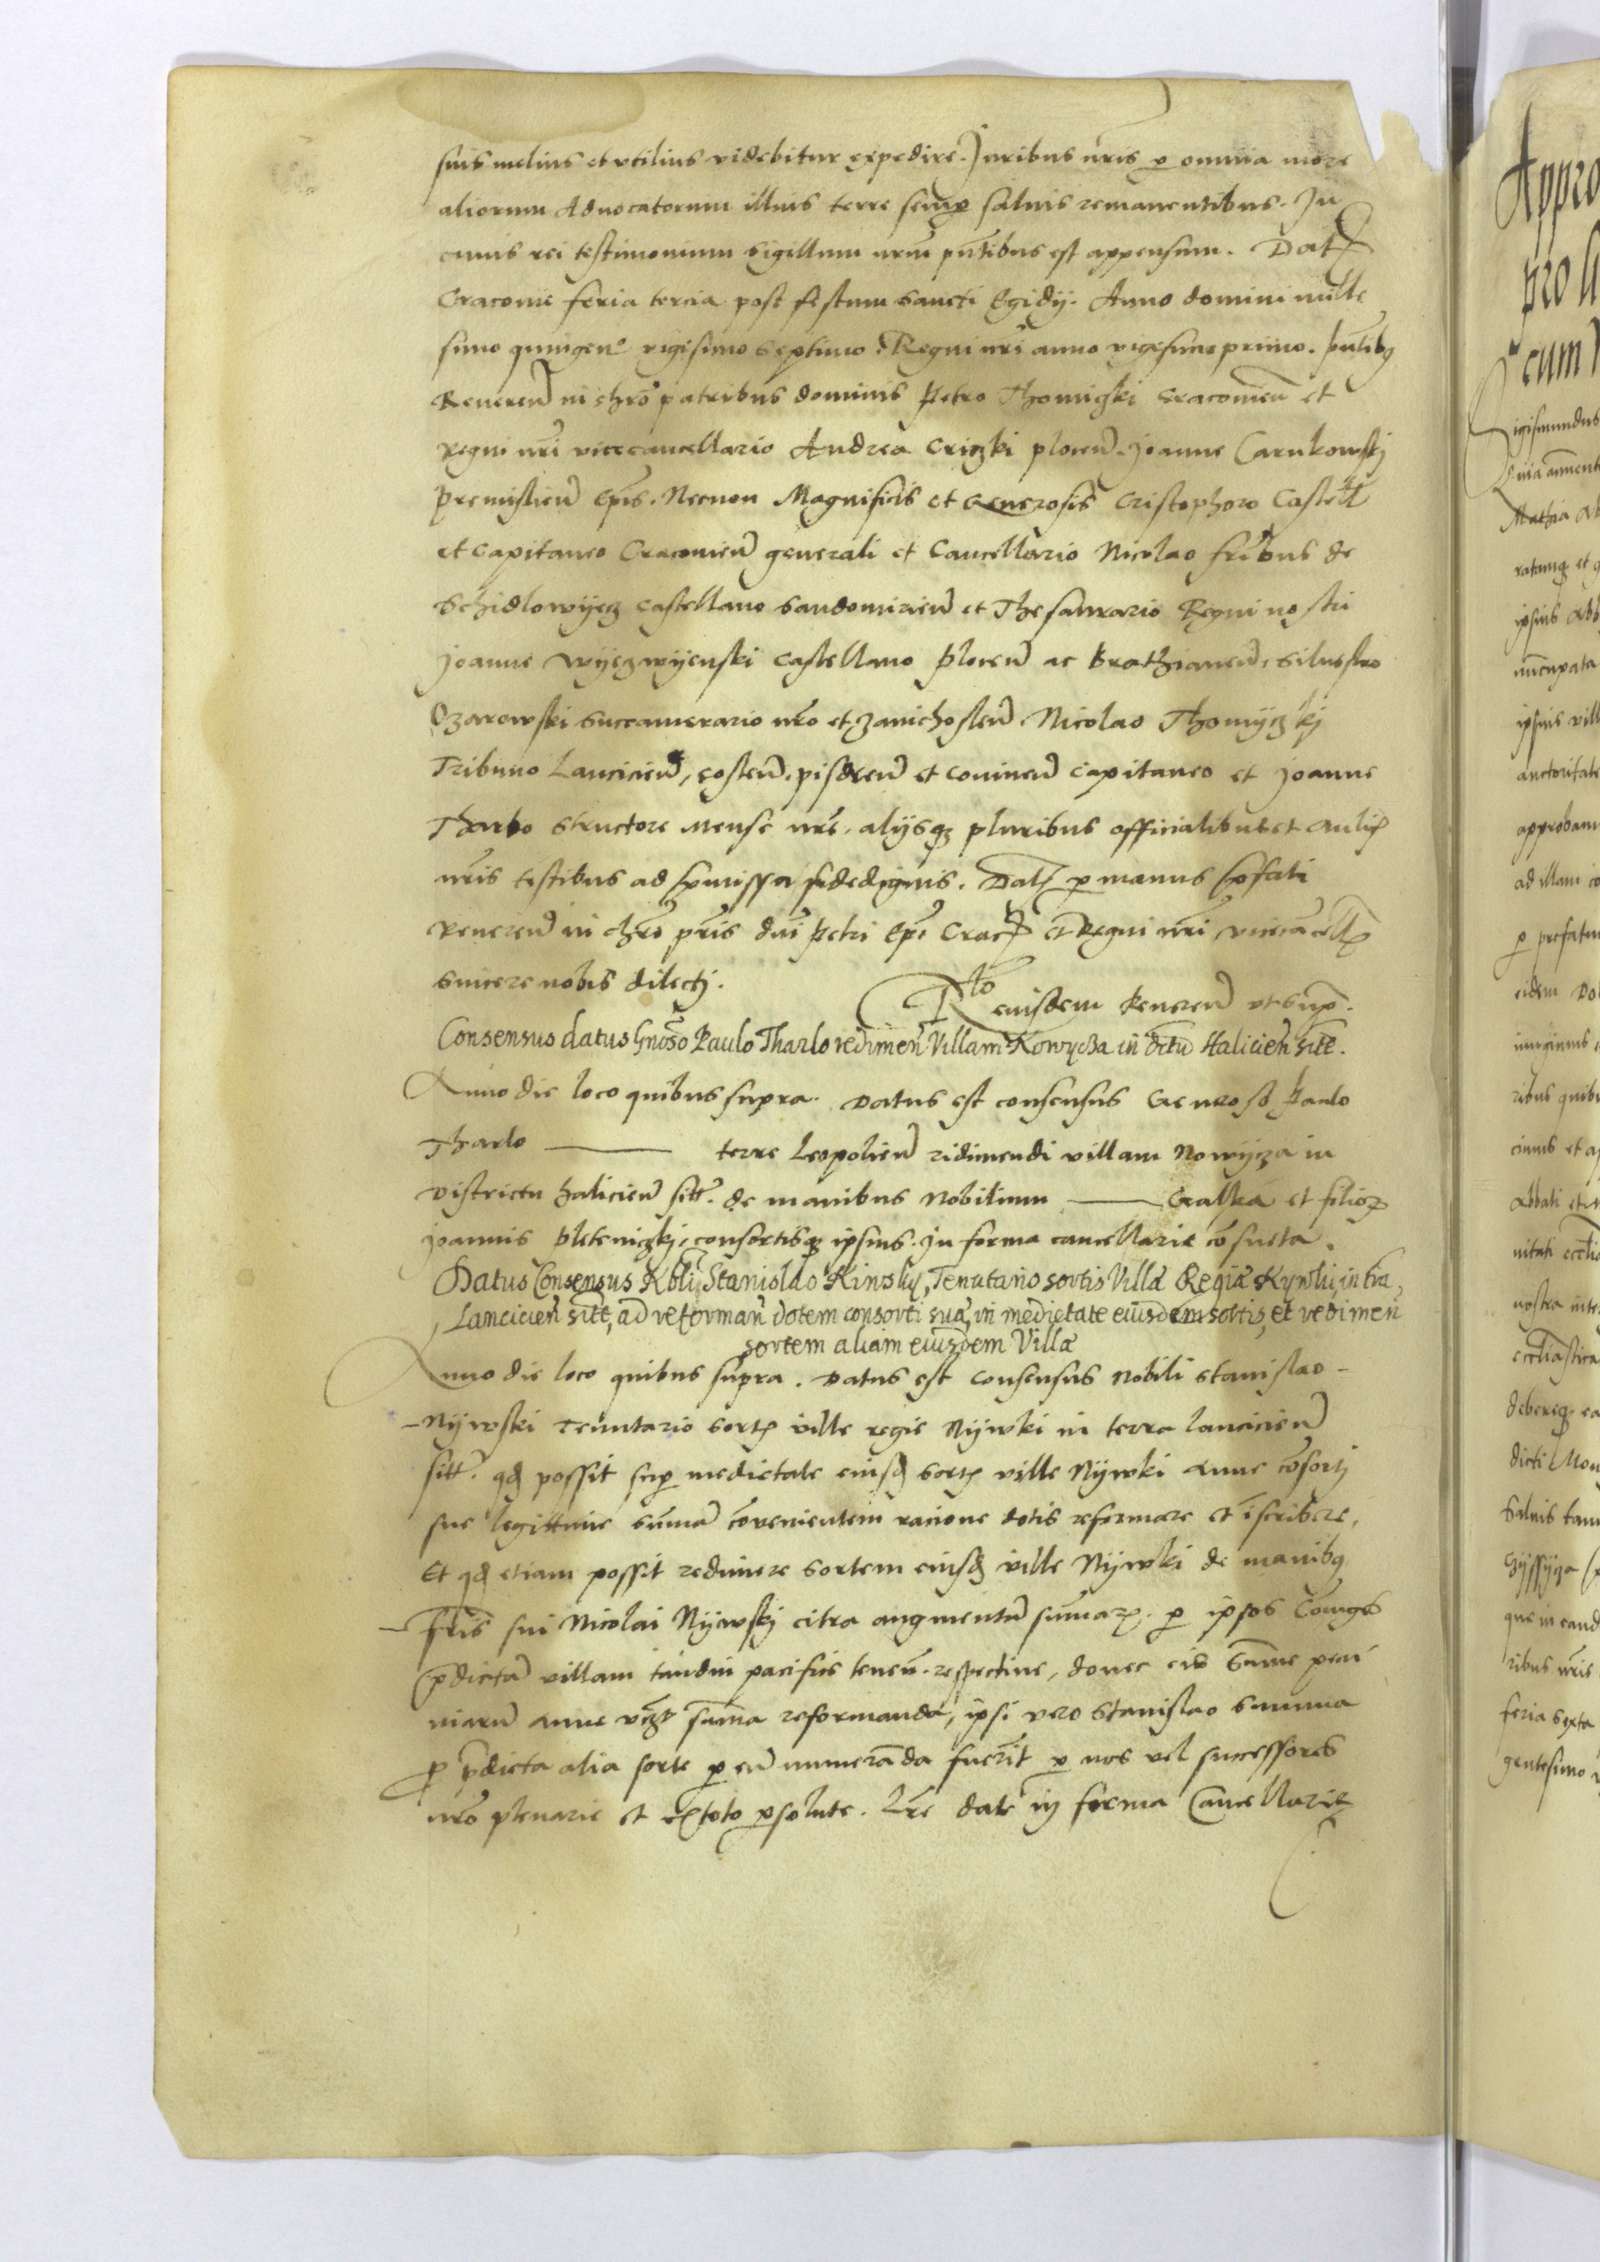 suis melius et vtilius videbitur expedire. Juribus nris p omnia more
aliorum Aduocatorum illius terre semp saluis remanentibus. In
cuius rei testimonium sigillum nrm pntibus est appensum. Dat
Cracouie feria tercia post festum sancti Egidij. Anno domini mille
simo quingen° vigesimo septimo. Regni nri anno vigesimo primo. pntibq
Reueren in chro patribus dominis Petro Thomiczki Cracouien et
Regni nri vicecancellario Andrea Criczki plocen. Joanne Carnkowskj
Premislien Epis. Necnon Magnificis et Generosis Cristophoro Castell
et Capitaneo Cracouien generali et Cancellario Nicolao fribus de
Schidlowyecz castellano Sandomirien et Thesaurario Regni nostri
Joanne Wyeczwyenski castellano plocen ac Brathianen, Siluestro
Ozarowski Succamerario nro et Zawichosten Nicolao Thomyczkj
Tribuno Lancicien, costen, pisdren et Coninen Capitaneo et Joanne
Tharlo structore mense nre, alijsqz pluribus officialibus et aulicis
nris testibus ad pmissa fidedignis. Dat p manus pfati
Reueren in chro pris dni Petri Epi Crac et Regni nri vicecancell
sincere nobis dilectj.
Rlo eiusdem Reueren vt sup.
Consensus datus Gnoso Paulo Tharlo redimen Villam Nowycza in dctu Halicien site.
Anno die loco quibus supra. Datus est consensus Generoso Paulo
Tharlo ——— terre Leopolien ridimendi villam Nowycza in
Districtu halicien sitt. de manibus nobilium ——— Galka et filior
Joannis Pleteniczkj, consortisqz ipsius. In forma cancellarie cosueta.
Datus Consensus Nbli Stanislao Niwsky, Tenutario sortis Villæ Regiæ Nywki, in tra,
Lancicien site, ad reforman dotem consorti suæ, in medietate eiusdem sortis, et redimen
sortem aliam eiusdem Villæ
Anno die loco quibus supra. Datus est consensus nobili Stanislao -
- Nywski Tenutario sort ville regie Nywki in terra lancicien
sitt. qd possit sup medietate eiusd sort ville Nywki Anne cosortj
sue legittime summa couenientem racione dotis reformare et iscribere,
Et qd etiam possit redimere sortem eiusd ville Nywki de manibq
- fris sui Nicolai Nywskj citra augmentu sumar. p ipsos Coniuges
pdicta villam tandiu pacifice tenen. respectiue, donec eis Summe pecu
niaru anne vigt suma reformanda, ipsi vero Stanislao summa
p pdicta alia sorte p eu numeranda fuerit p nos vel successores
nros plenarie et ex toto psolute. Lre date in forma Cancellarie